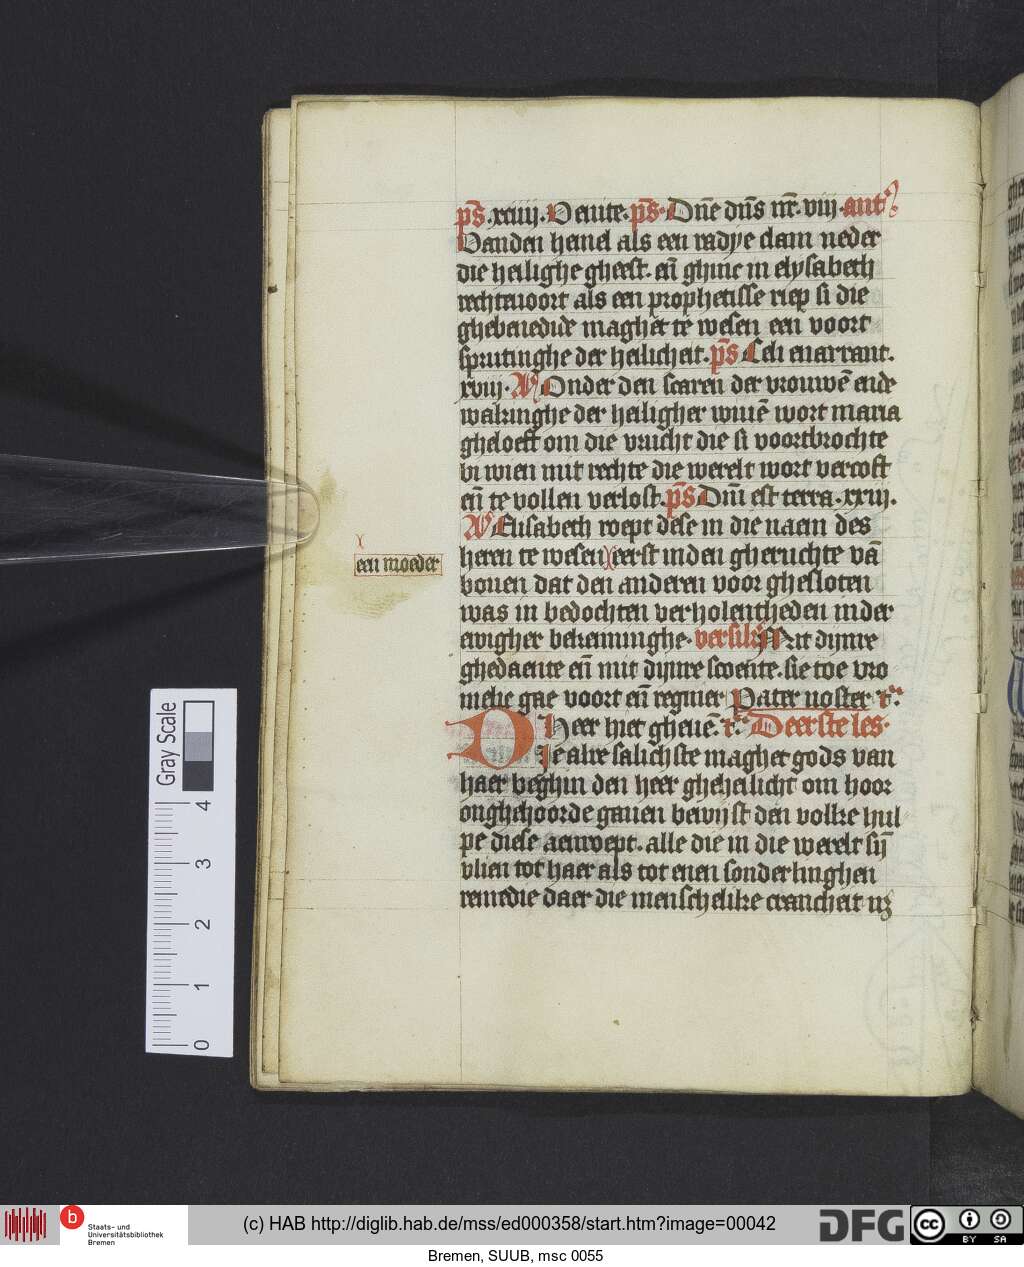 ps̄ .xciiij. Venite. ps̄. Dn̄e dn̄s nr̄. viij. ant̄
Vanden hemel als een radye clam neder
die heilighe gheest. en̄ ghinc in elysabeth
rechteuoort als een prophetisse riep si die
ghebenedide maghet te wesen een voort
sprutinghe der heilicheit. ps̄ Celi enarrant.
xviij. A Onder den scaren der vrouwē ende
walringhe der heiligher wiuē wort maria
gheloeft om die vrucht die si voortbrochte
bi wien mit rechte die werelt wort vercoft
en̄ te vollen verlost. ps̄ Dn̄i est terra. xxiij.
A Elisabeth roept dese in die naem des
heren te wesen eerst inden gheruchte vā
een moeder
bouen dat den anderen voor ghesloten
was in bedochten verholentheden inder
ewigher bekenninghe. versikel Mit dijnre
ghedaente en̄ mit dijnre scoente. sie toe vro
melic gae voort en̄ regnier Pater noster
Heer hier gheuē. Deerste les.
Die alre salichste maghet gods van
haer beghin den heer gheheilicht om hoor
onghehoorde gauen bewijst den volke hul
pe diese aenroept. alle die in die werelt sij̄
vlien tot haer als tot enen sonderlinghen
remedie daer die menschelike crancheit
Gray Scale
4
3
2
1
0
b
Staats- und
Universitätsbibliothek
Bremen
(c) HAB http://diglib.hab.de/mss/ed000358/start.htm?image=00042
DFG
cc
BY SA
Bremen, SUUB, msc 0055